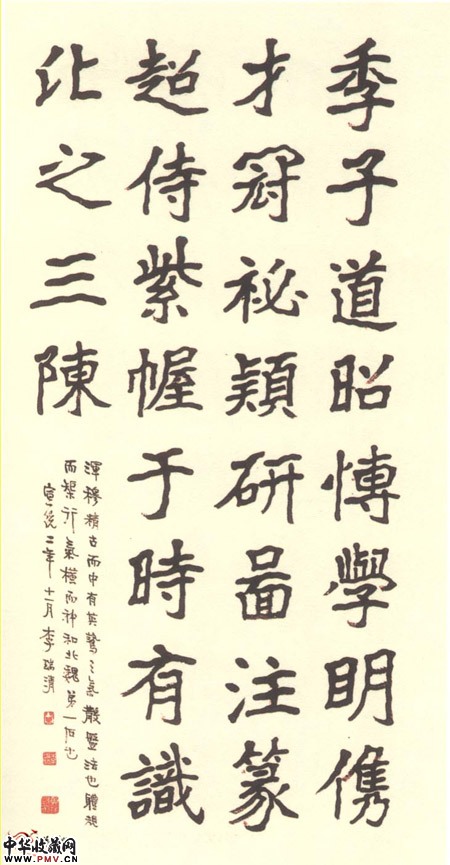 季子道昭愽學明儁
才冠祕穎研啚注篆
超侍紫幄于時有識
比之三陳
渾穆積古而中有英鷙之氣散盤法也體
而行氣橫而神和北魏第一石也
宣統二年十一月李瑞清
中华收藏网
WWW.PMV.CN